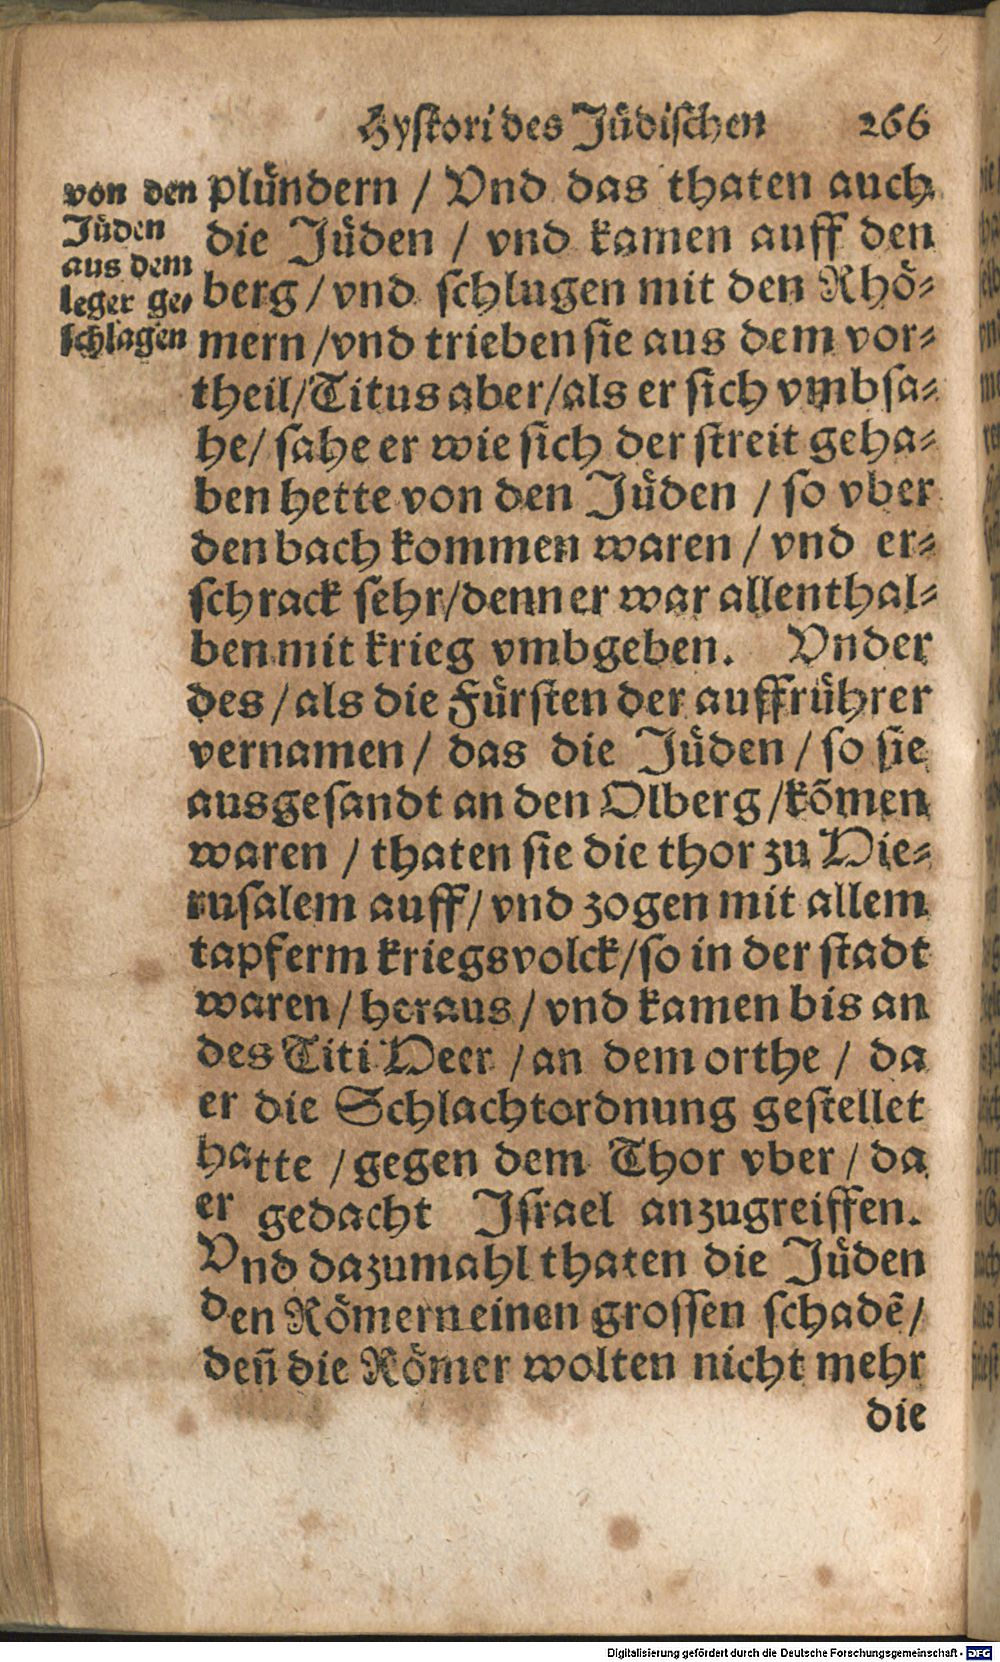 Hystori des Jüdischen 266
von den
Jüden
aus dem
leger ge-
schlagen
plündern / Vnd das thaten auch
die Jüden / vnd kamen auff den
berg / vnd schlugen mit den Rhö-
mern / vnd trieben sie aus dem vor-
theil / Titus aber / als er sich vmbsa-
he / sahe er wie sich der streit geha-
ben hette von den Jüden / so vber
den bach kommen waren / vnd er-
schrack sehr / denn er war allenthal-
ben mit krieg vmbgeben. Vnder
des / als die Fürsten der auffrührer
vernamen / das die Jüden / so sie
ausgesandt an den Olberg / kõmen
waren / thaten sie die thor zu Hie-
rusalem auff / vnd zogen mit allem
tapferm kriegsvolck / so in der stadt
waren / heraus / vnd kamen bis an
des Titi Heer / an dem orthe / da
er die Schlachtordnung gestellet
hatte / gegen dem Thor vber / da
er gedacht Israel anzugreiffen.
Vnd dazumahl thaten die Jüden
den Römern einen grossen schadẽ /
deñ die Römer wolten nicht mehr
die
Digitalisierung gefördert durch die Deutsche Forschungsgemeinschaft - DFG